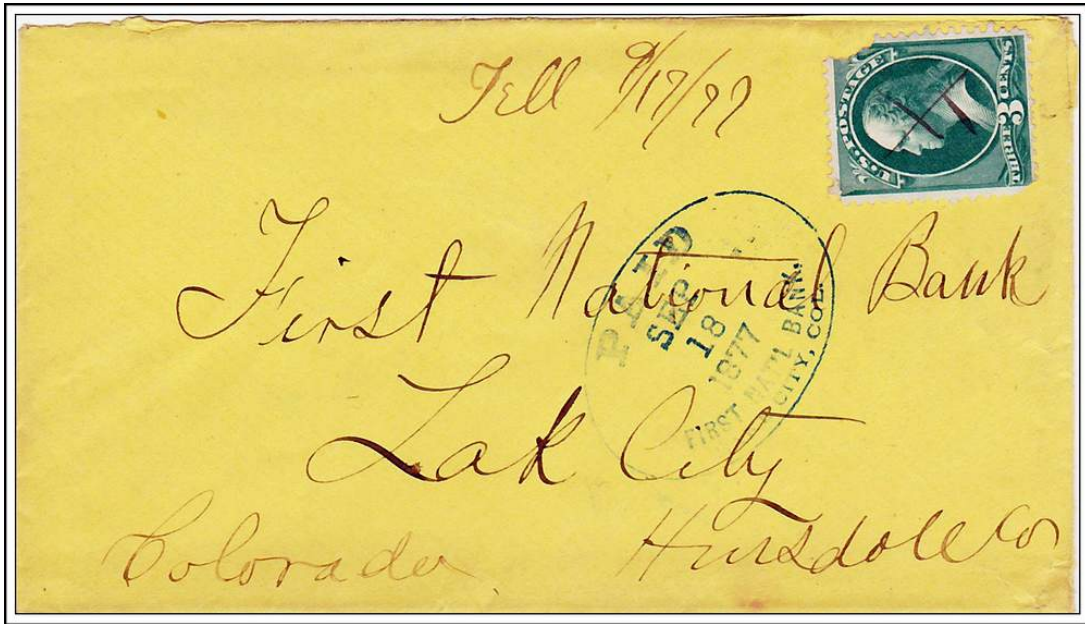 Tell 9/17/77
U.S. POSTAGE
THREE 3 CENTS
First National Bank
PAID
SEP.
18
1877
FIRST NAT'L BANK.
CITY, COL.
Lak City
Colorado Hinsdole Co